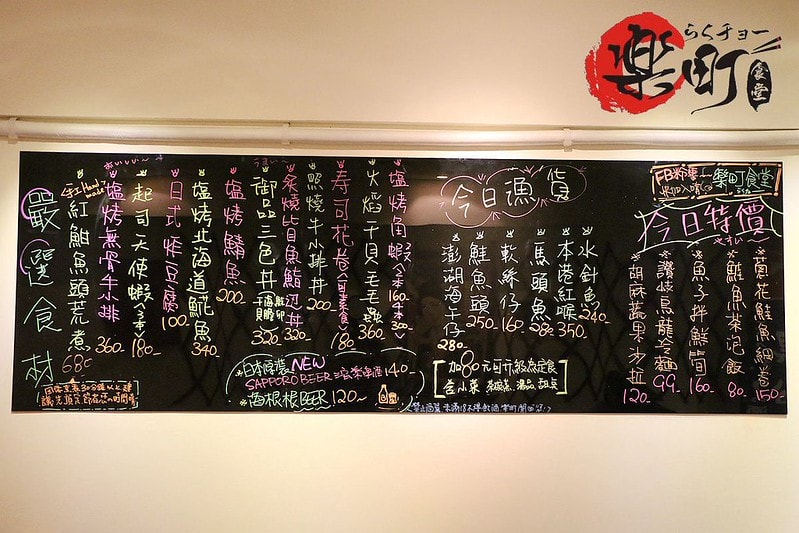 らくチョー
楽町
食堂
FB粉專－樂町食堂
今日特價
黃花鮭魚細卷 150-
鮭魚茶泡飯 80-
魚子拌鮮筍 160-
讚岐烏龍冷麵 99-
胡麻蔬果沙拉 120-
今日漁貨
水針魚 240-
本港紅喉 350-
馬頭魚 280-
軟絲仔 160-
鮭魚頭 250-
澎湖海午仔 280-
加80元可升級成定食
含小菜 湯品 甜點
塩烤角蝦
火焰干貝毛毛蟲 360-
壽司花卷(可素食) 180-
照燒牛小排丼 200-
炙燒比目魚鮨辺丼 320-
御品三色丼 320-
塩烤鯖魚 200-
塩烤北海道䱀魚 340-
日式炸豆腐 100-
起司大使蝦(2本) 180-
塩烤無骨牛小排 360-
手工Handmade
紅魽魚頭荒煮 680-
嚴選食材
NEW
SAPPORO BEER 140-
BEER 120~